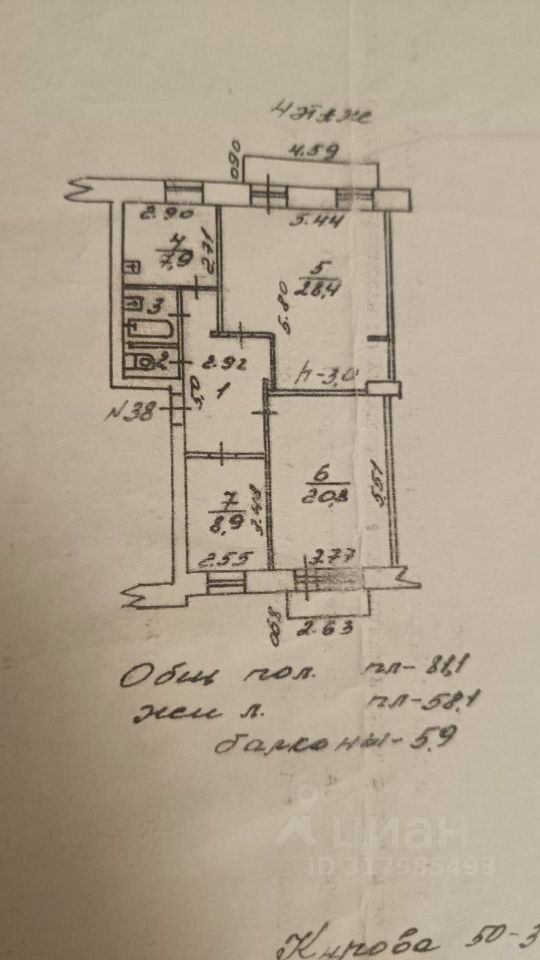 4 этаж
4.59
0.90
2.90
5.44
4
7,9
2.71
5
28,4
5.80
3
2
2.92
h-3,0
5,0
1
N38
6
20,8
5.51
7
8,9
3.48
2.55
3.77
0.90
2.63
Общ пол. пл-81,1
жил. пл-58,1
балконы-5,9
циан
ID 317985493
Кирова 50-3